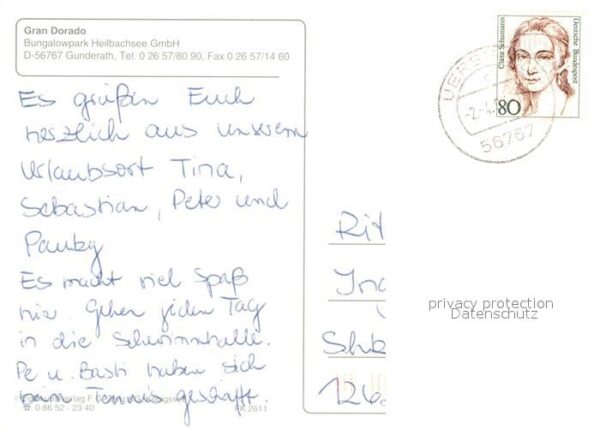 Gran Dorado
Bungalowpark Heilbachsee GmbH
D-56767 Gunderath, Tel. 0 26 57/80 90, Fax 0 26 57/14 60
Es grüßen Euch
herzlich aus unserem
Urlaubsort Tina,
Sebastian, Peter und
Es macht viel Spaß
hier. Gehen jeden Tag
in die Schwimmhalle.
Pe u. Basti haben sich
beim Tennis geschafft.
☎ 0 86 52 - 23 40
FK 2611
Clara Schumann
Deutsche Bundespost
80
UERS
56767
Rit
privacy protection
Datenschutz
126